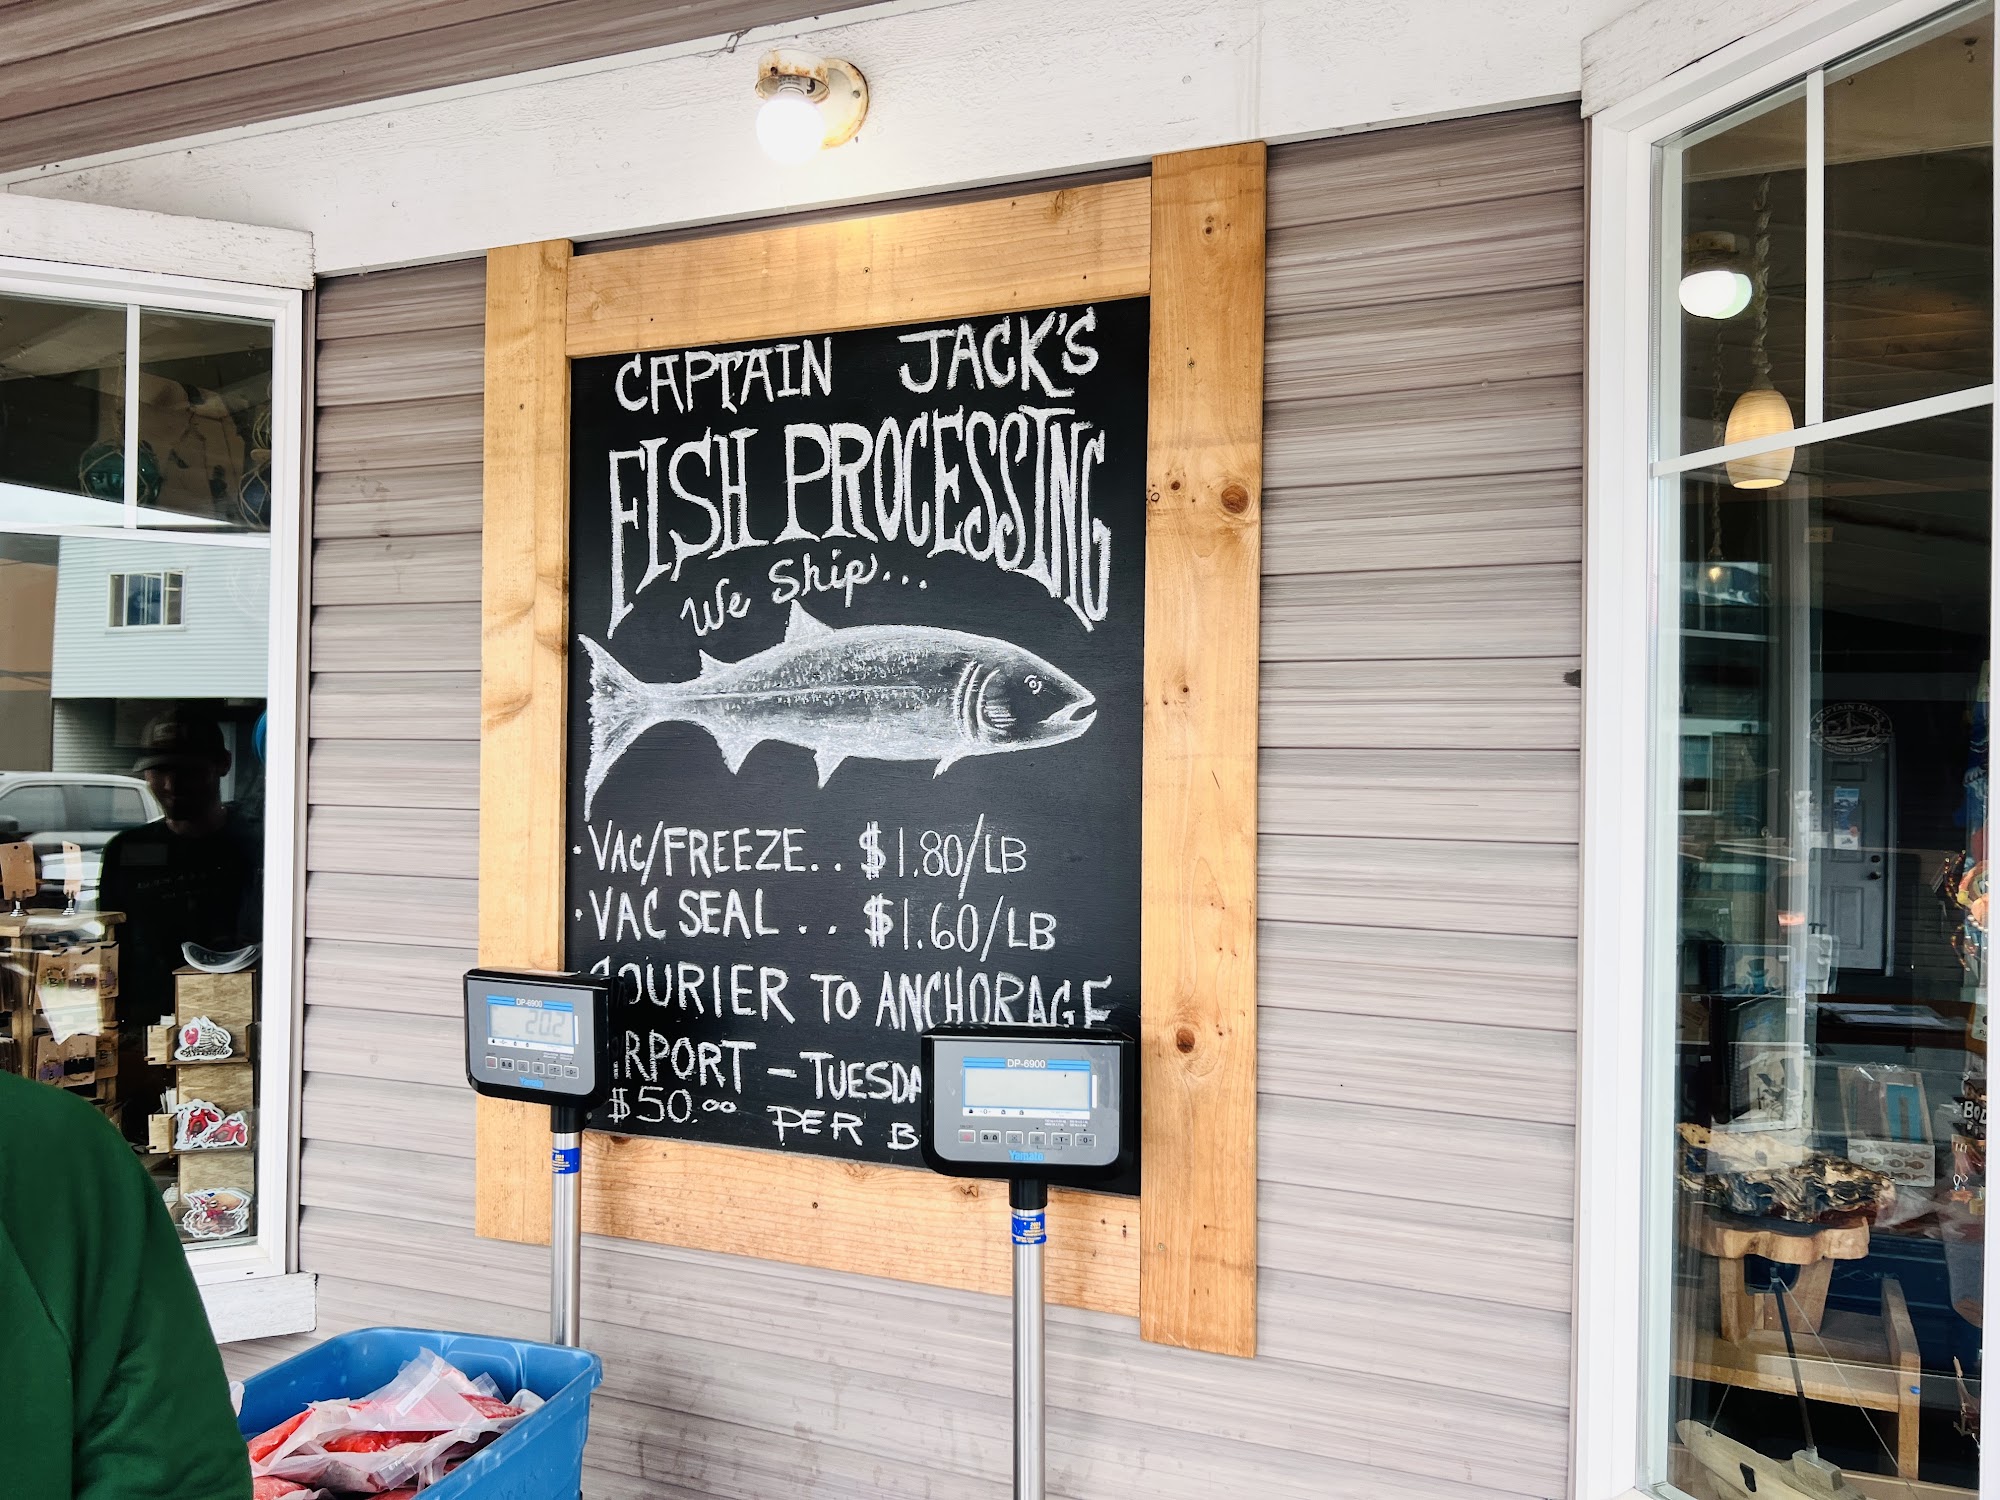 CAPTAIN JACK'S
FISH PROCESSING
We Ship...
· VAC/FREEZE.. $1.80/LB
· VAC SEAL .. $1.60/LB
COURIER TO ANCHORAGE
- 
$50.00 PER
DP-6900
202
Yamato
DP-6900
Yamato
CAPTAIN JACK'S